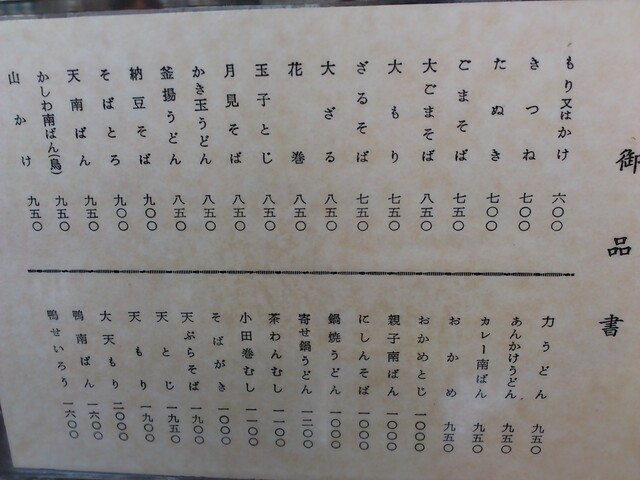 御品書
もり又はかけ 六〇〇
きつね 七〇〇
たぬき 七〇〇
ごまそば 七五〇
大ごまそば 八五〇
大もり 七五〇
ざるそば 七五〇
大ざる 八五〇
花巻 八五〇
玉子とじ 八五〇
月見そば 八五〇
かき玉うどん 八五〇
釜揚うどん 八五〇
納豆そば 九〇〇
そばとろ 九〇〇
天南ばん 九五〇
かしわ南ばん(鳥) 九五〇
山かけ 九五〇
力うどん 九五〇
あんかけうどん 九五〇
カレー南ばん 九五〇
おかめ 九五〇
おかめとじ 一〇〇〇
親子南ばん 一〇〇〇
にしんそば 一〇〇〇
鍋焼うどん 一〇〇〇
寄せ鍋うどん 一二〇〇
茶わんむし 一一〇〇
小田巻むし 一一〇〇
そばがき 一〇〇〇
天ぷらそば 一九〇〇
天とじ 一九五〇
天もり 一九〇〇
大天もり 二〇〇〇
鴨南ばん 一六〇〇
鴨せいろう 一六〇〇